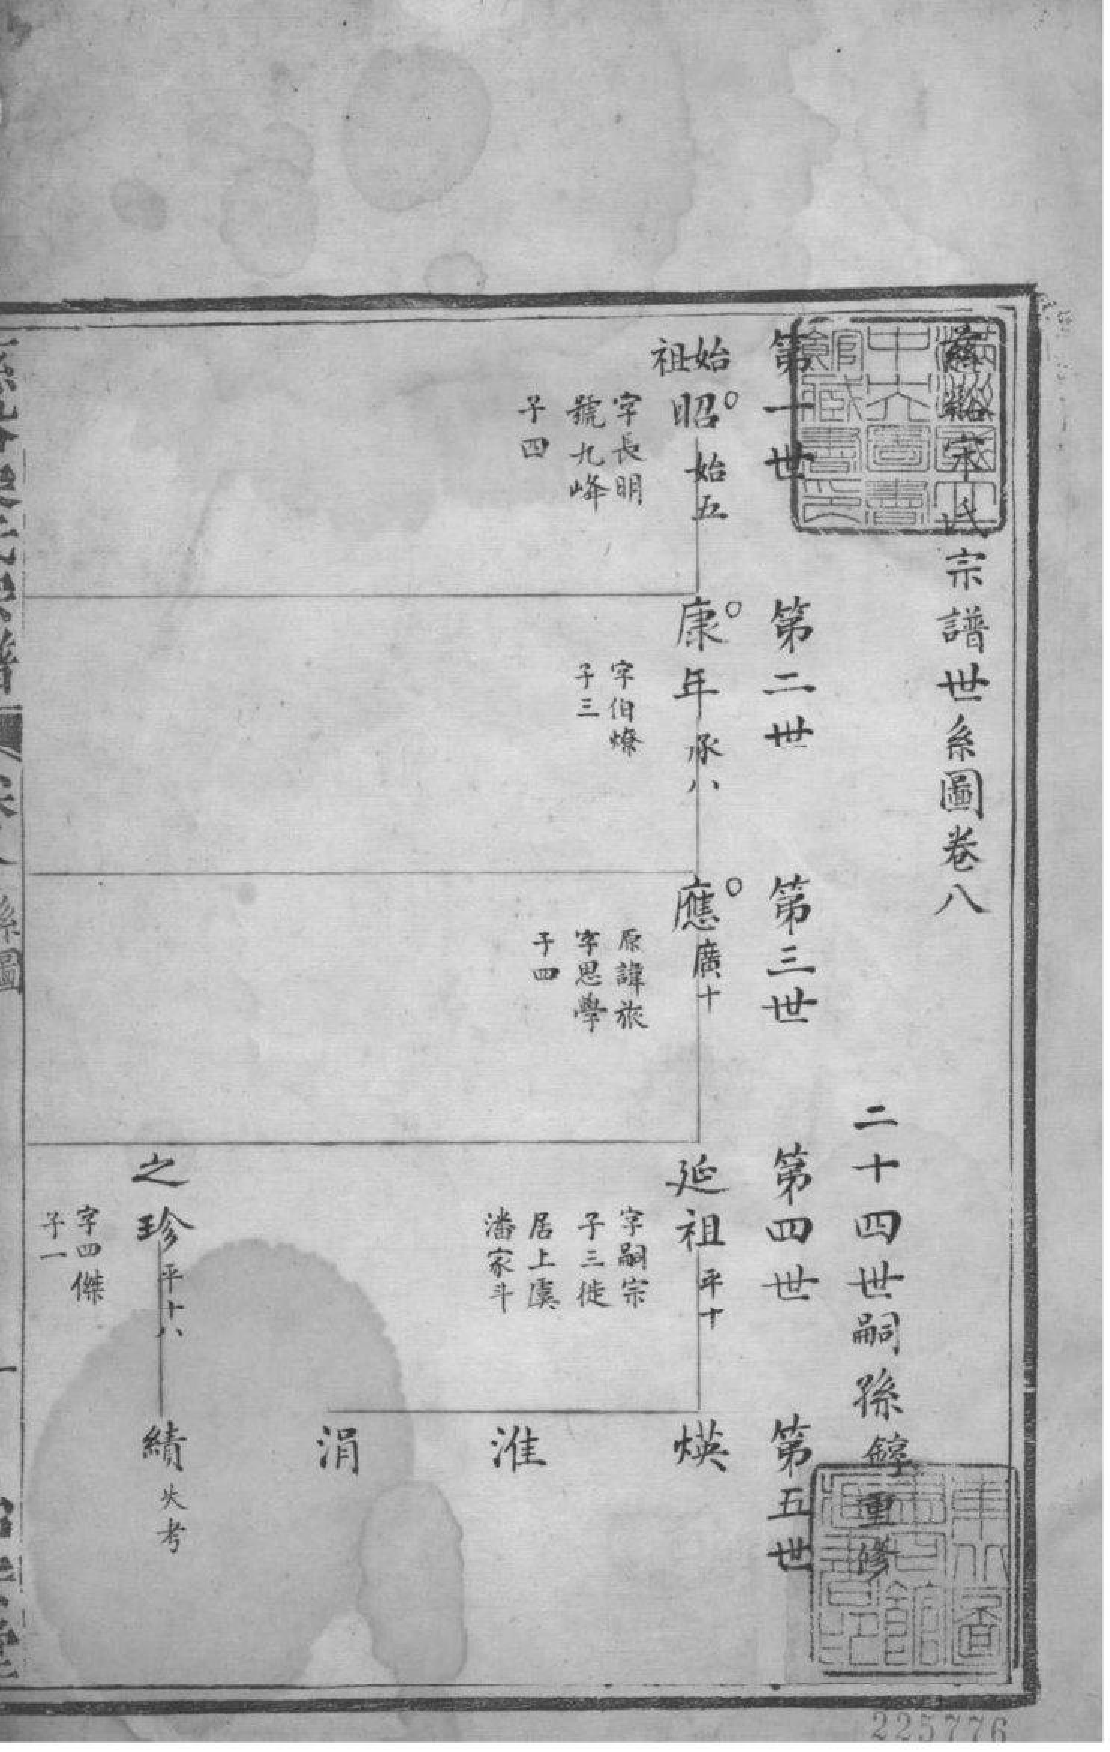 慈谿宋氏宗譜世系圖卷八
二十四世嗣孫錞重修
第一世
第二世
第三世
第四世
第五世
始祖
昭 始五
字長明
號九峰
子四
康年 承八
字伯燎
子三
應 廣十
原諱旅
字思學
子四
延祖 平十
字嗣宗
子三徙
居上虞
潘家斗
煐
淮
涓
之珍 平十八
字四傑
子一
績 失考
系圖
一
225776